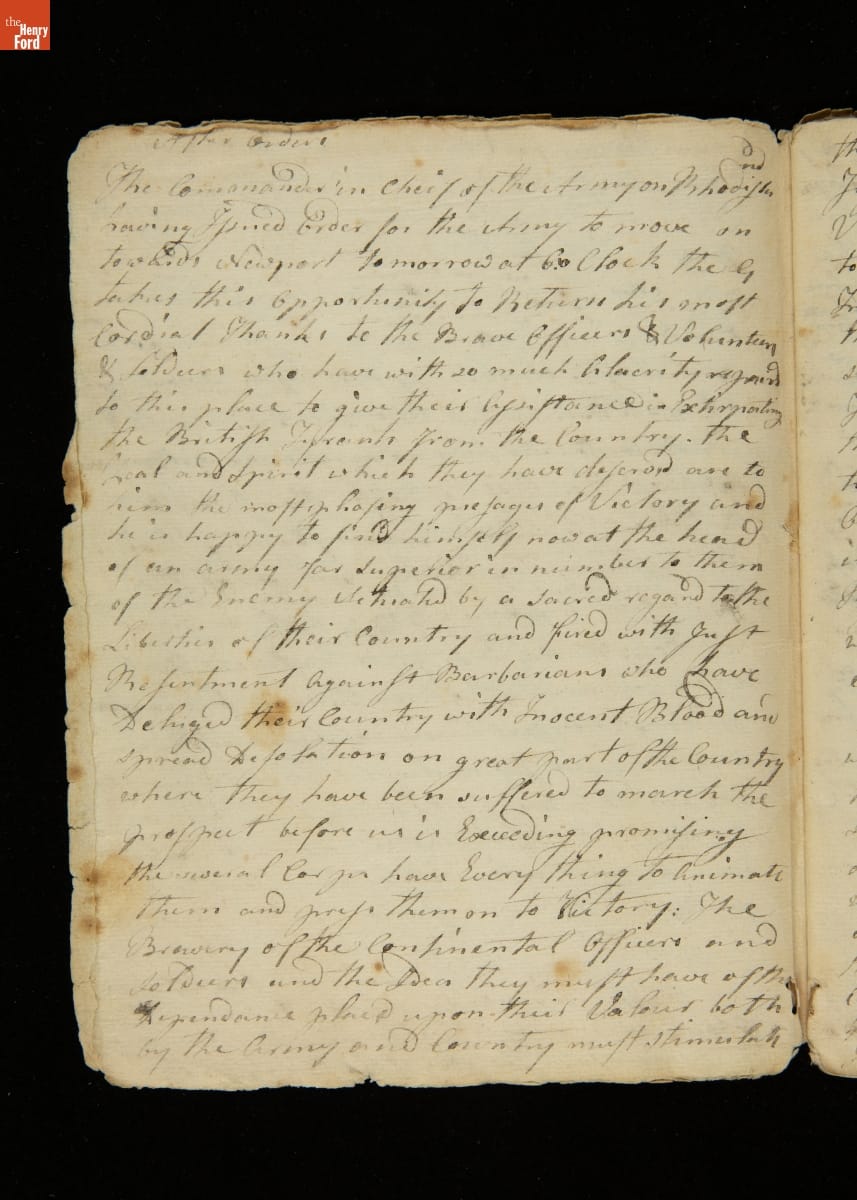 the
Henry
Ford
After Orders
The Comander in Cheif of the Army on Rhodisland
having Issued Order for the Army to move on
towards Newport Tomorrow at 6 o Clock the G
takes this Opportunity to Return his most
Cordial Thanks to the Brave Officers & Volunteers
& Soldiers who have with so much Alacrity repaird
to this place to give their Assistance in Exhirpating
the British Tyrants from the Country. the
Zeal and Spirit which they have
him the most phasing presages of Victory and
he is happy to find himself now at the head
of an army far Superior in number to them
of the Enemy Actuated by a Sacred regard to the
Liberties of their Country and fired with Just
Resentment Against Barbarians who have
Deluged their Country with Inocent Blood and
spread Desolation on great part of the Country
where they have been suffered to march the
prospect before us is Exceeding promising
the several Corps have Every thing to Animate
them and press them on to Victory: The
Bravery of the Continental Officers and
Soldiers and the Idea they must have of the
Dependance placd upon their Valour both
by the Army and Country must stimulate